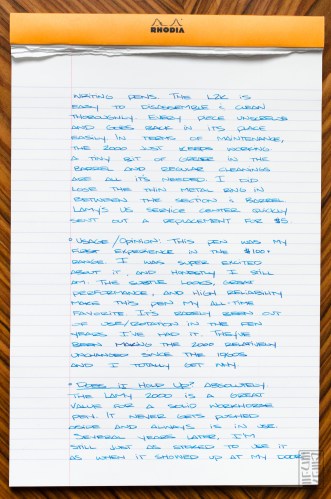 RHODIA
WRITING PENS. THE L2K IS
EASY TO DISASSEMBLE & CLEAN
THOROUGHLY. EVERY PIECE UNSCREWS
AND GOES BACK IN ITS PLACE
EASILY. IN TERMS OF MAINTENANCE,
THE 2000 JUST KEEPS WORKING
A TINY BIT OF GREASE IN THE
BARREL AND REGULAR CLEANINGS
ARE ALL ITS NEEDED. I DID
LOSE THE THIN METAL RING IN
BETWEEN THE SECTION & BARREL
LAMY'S US SERVICE CENTER QUICKLY
SENT OUT A REPLACEMENT FOR $5
• USAGE/OPINION: THIS PEN WAS MY
FIRST EXPERIENCE IN THE $100+
RANGE. I WAS SUPER EXCITED
ABOUT IT, AND HONESTLY I STILL
AM. THE SUBTLE LOOKS, GREAT
PERFORMANCE, AND HIGH RELIABILITY
MAKE THIS PEN MY ALL-TIME
FAVORITE. IT'S RARELY BEEN OUT
OF USE/ROTATION IN THE FEW
YEARS I'VE HAD IT. THEY'VE
BEEN MAKING THE 2000 RELATIVELY
UNCHANGED SINCE THE 1960S
AND I TOTALLY GET WHY
• DOES IT HOLD UP? ABSOLUTELY.
THE LAMY 2000 IS A GREAT
VALUE FOR A SOLID WORKHORSE
PEN. IT NEVER GETS PUSHED
ASIDE AND ALWAYS IS IN USE.
SEVERAL YEARS LATER, I'M
STILL JUST AS STOKED TO USE IT
AS WHEN IT SHOWED UP AT MY DOOR